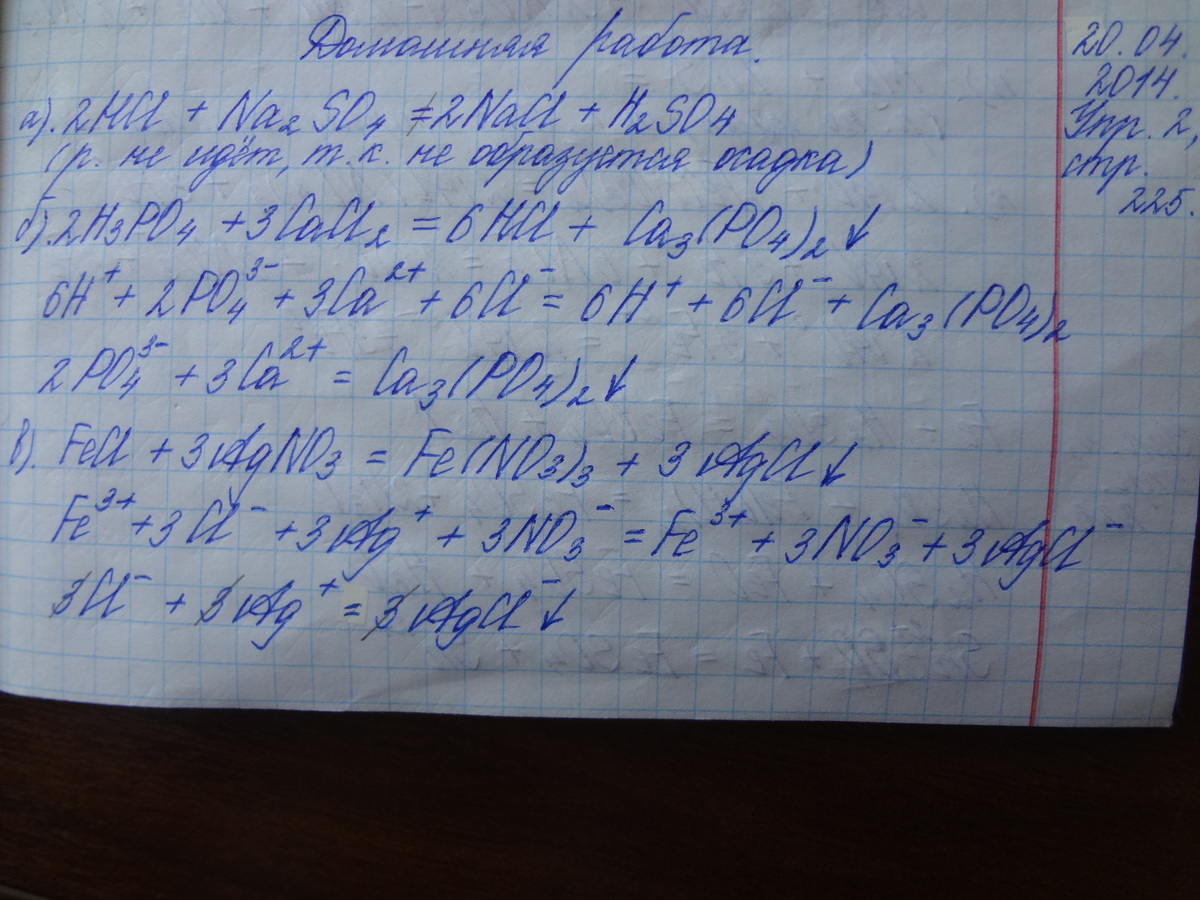 Домашняя работа.
20.04.
2014.
Упр. 2,
стр.
225.
а). 2HCl + Na₂SO₄ ≠ 2NaCl + H₂SO₄
(р. не идёт, т.к. не образуется осадка)
б). 2H₃PO₄ + 3CaCl₂ = 6HCl + Ca₃(PO₄)₂↓
6H⁺ + 2PO₄³⁻ + 3Ca²⁺ + 6Cl⁻ = 6H⁺ + 6Cl⁻ + Ca₃(PO₄)₂
2PO₄³⁻ + 3Ca²⁺ = Ca₃(PO₄)₂↓
в). FeCl + 3AgNO₃ = Fe(NO₃)₃ + 3AgCl↓
Fe³⁺ + 3Cl⁻ + 3Ag⁺ + 3NO₃⁻ = Fe³⁺ + 3NO₃⁻ + 3AgCl⁻
3Cl⁻ + 3Ag⁺ = 3AgCl⁻↓